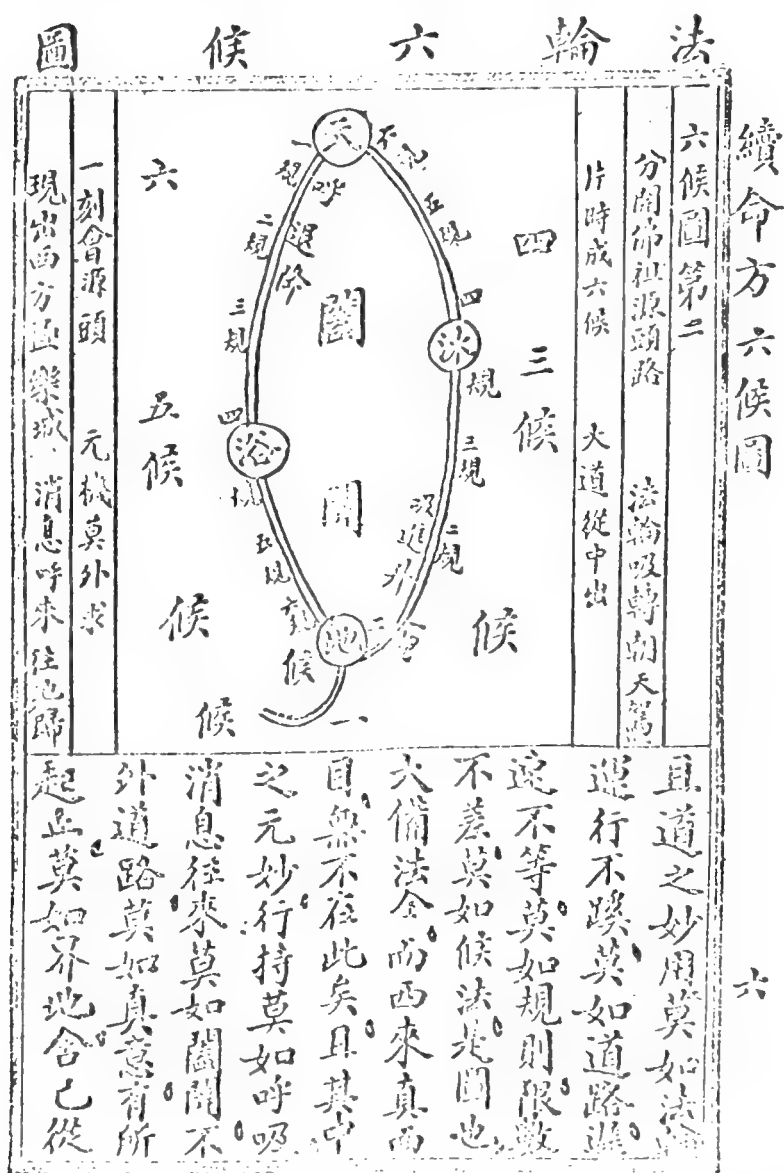 法輪六候圖
續命方六候圖
六
六候圖第二
分開佛祖源頭路 法輪吸轉朝天駕
片時成六候 大道從中出
四 三候
候
天
沐
地
浴
闔
闢
不
五規
四
規
三規
二規
吸進升
一規
呼退降
二規
三規
四
規
五規
候
一
候
六
五候
候
一刻會源頭 元機莫外求
現出西方極樂城 消息呼來往地歸
且道之妙用莫如法輪
運行不蹊莫如道路遲
速不等莫如規則限數
不差莫如候法是圖也
大備法全而西來真面
目無不在此矣且其中
之元妙行持莫如呼吸
消息往來莫如闔闢不
外道路莫如真意有所
起止莫如界地舍己從